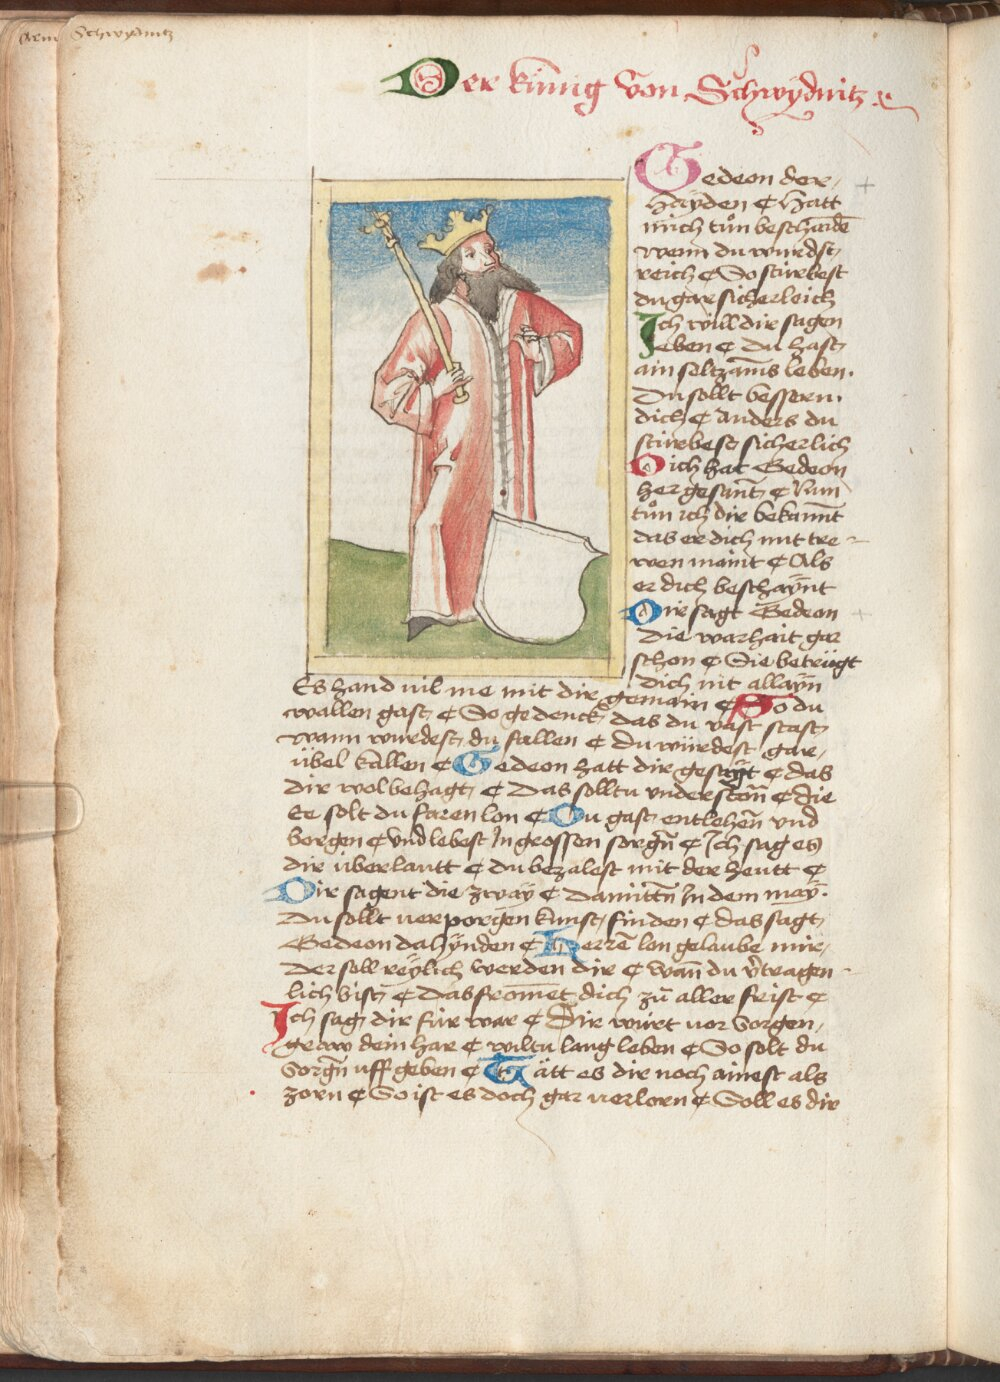 Schwydnitz
Der künig von Schwÿdnitz
Gedeon der
Haÿden ¢ Hatt
mich tůn beschaide
wenn du wurdst
reich ¢ So stirbest
du gar sicherleich
Ich will dir sagen
eben ¢ du hast
ain seltzams leben.
Du sollt bessern
dich ¢ anders du
stirbest sicherlich
Dich hat Gedeon
her gesannt ¢ Nun
tůn ich dir bekannt
das er dich mit tre
wen maint ¢ Als
er dich beschaÿnt
Dir sagt Gedeon
die warhait gar
schon ¢ Sie betrügt
dich nit allaÿn
Es hand vil me mit dir gemain ¢ So du
wallen gast ¢ So gedenck das du vast stast
wann wurdest du fallen ¢ du würdest gar
übel kallen ¢ Gedeon hatt dir gesaÿt ¢ das
dir wol behagt ¢ Das solltu understan ¢ die
Ee solt du faren lon ¢ Du gast entlehen und
borgen ¢ und lebest In grossen sorgn ¢ Ich sag es
dir überlautt ¢ du bezalest mit der heutt ¢
Dir sagent die zwaÿ ¢ Damittn In dem maÿ.
Du sollt verporgen kunst finden ¢ das sagt
Gedeon dahÿnden ¢ Herre lon gelaube mir
Der soll reÿlich werden dir ¢ wan du vtragen
lich bist ¢ Das fromet dich zu aller frist ¢
Ich sag dir für war ¢ Dir würt vor sorgen
graw dem har ¢ wiltu lang leben ¢ So solt du
Sorgn uff geben ¢ Tätt es dir noch ainest als
zorn ¢ So ist es doch gar verlorn ¢ Soll es dir